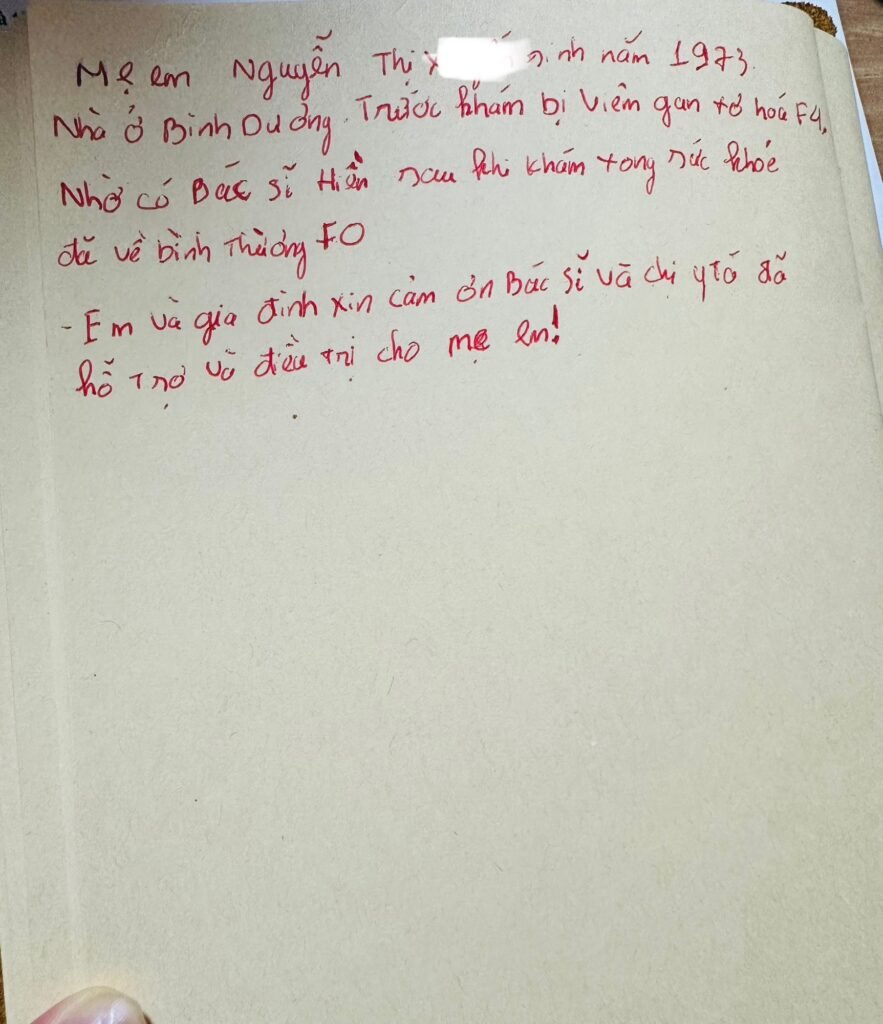 Mẹ em Nguyễn Thị X sinh năm 1973.
Nhà ở Bình Dương. Trước khám bị viêm gan tơ hoá F4.
Nhờ có Bác sĩ Hiền sau khi khám tong sức khoẻ
đã về bình thường F0
- Em và gia đình xin cảm ơn Bác sĩ và chị y tá đã
hỗ trợ và điều trị cho mẹ em!